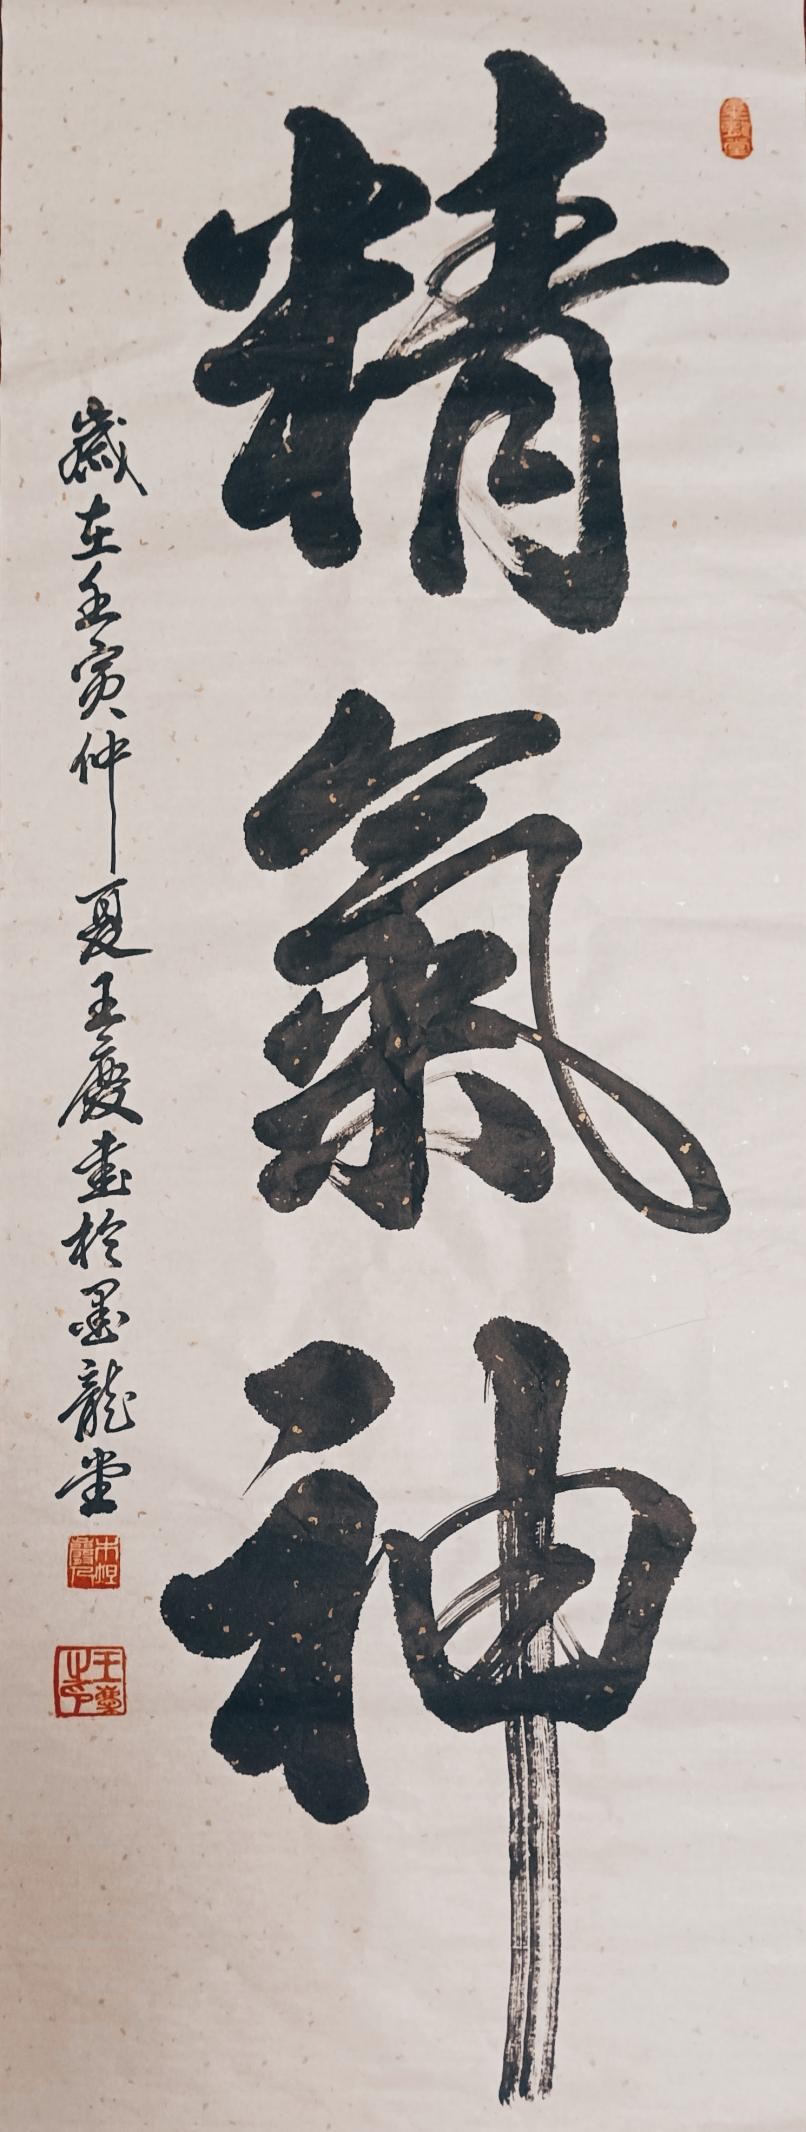 精氣神
歲在壬寅仲夏王慶書於墨龍堂
王慶之印